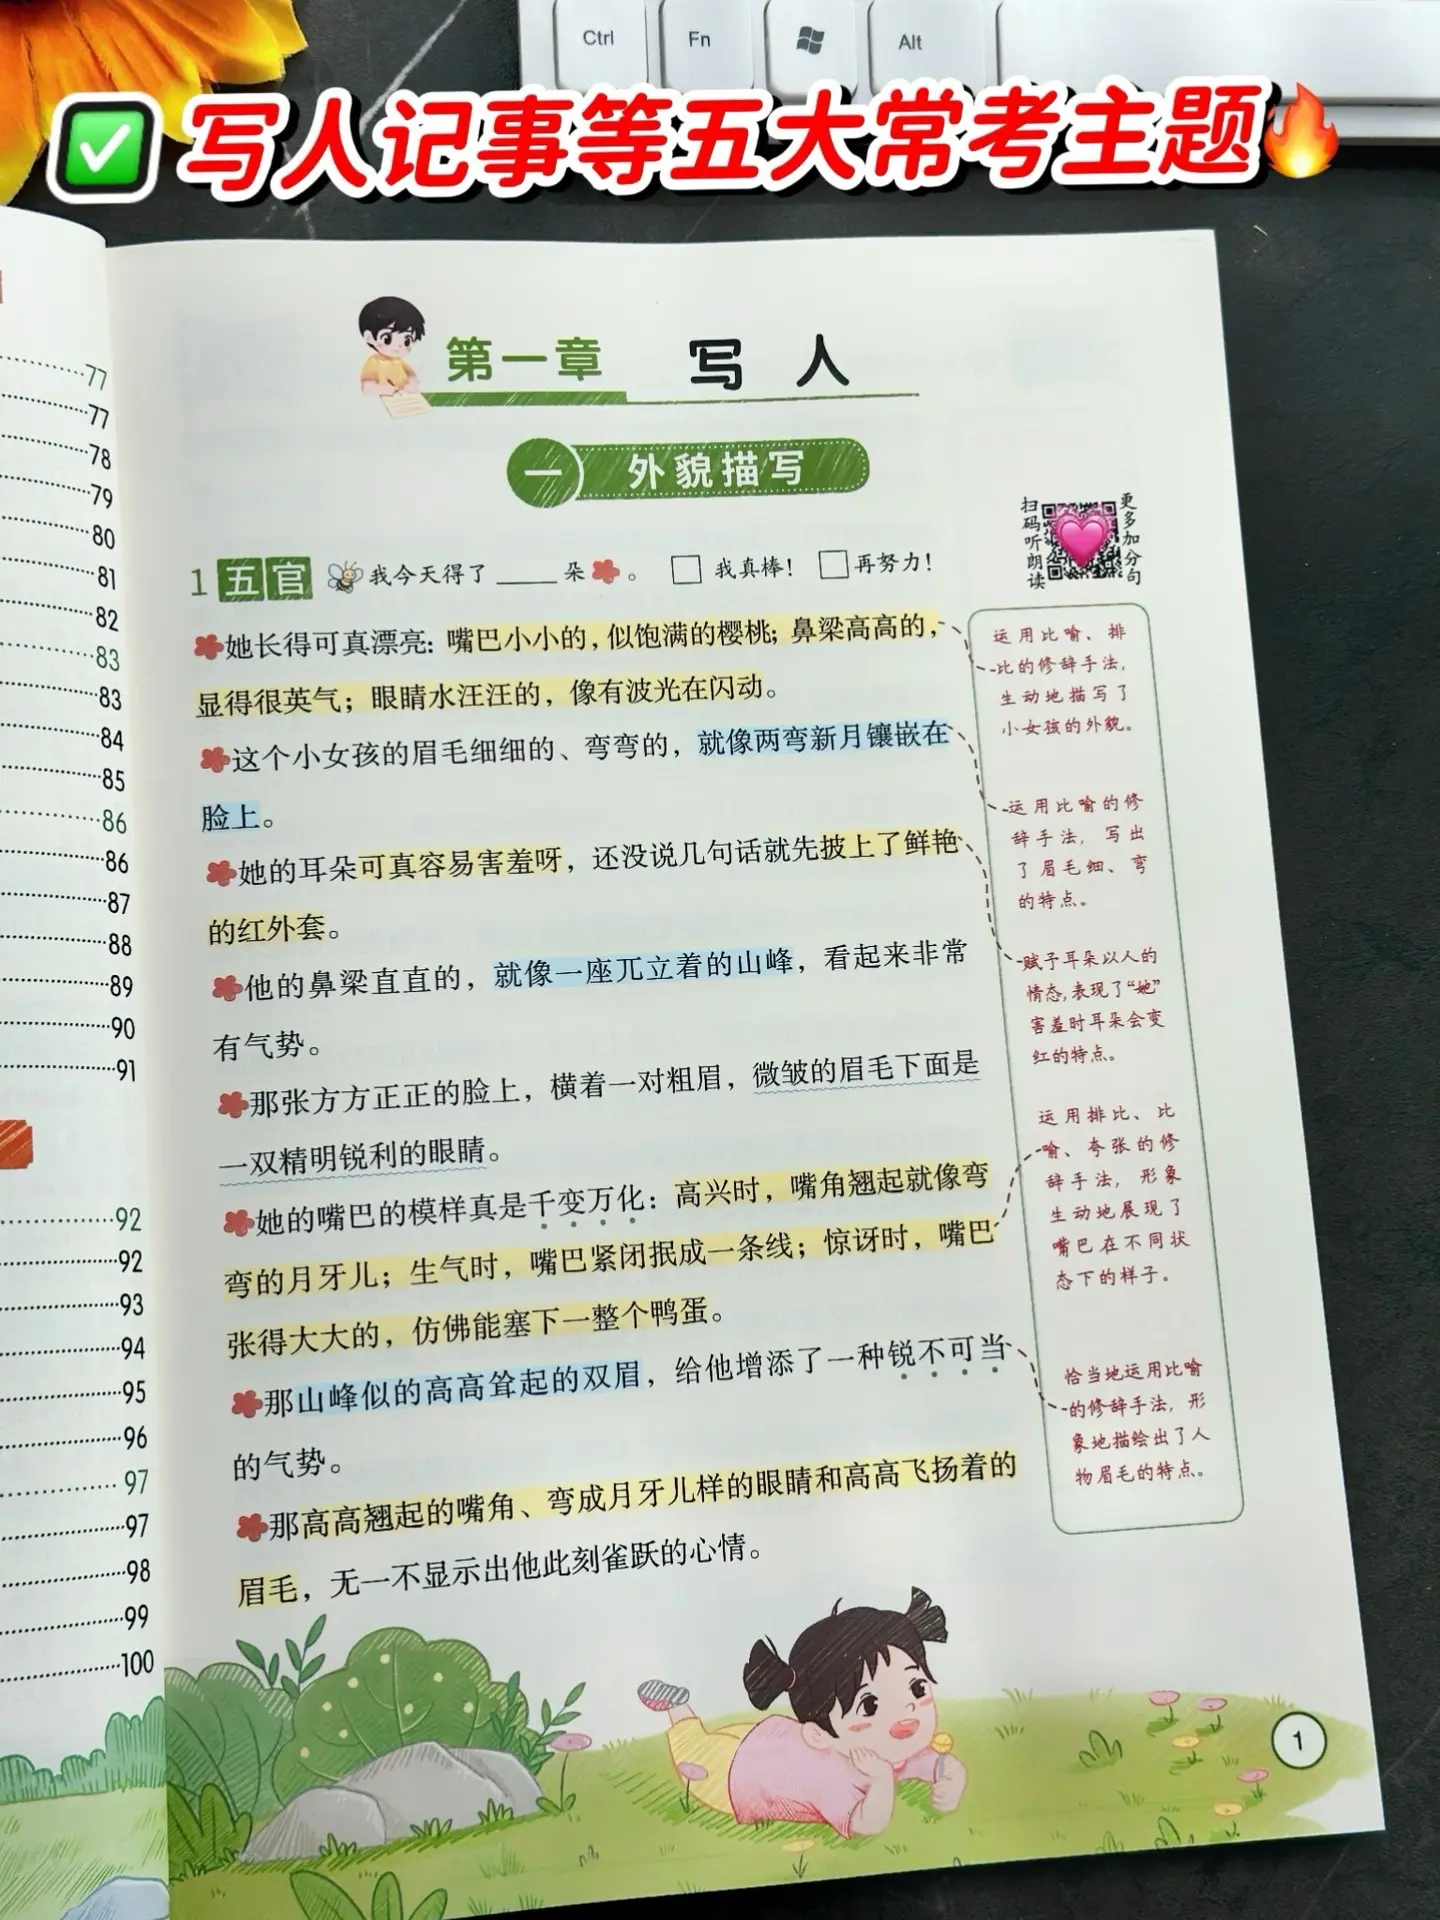 Ctrl Fn Alt
✅写人记事等五大常考主题🔥
77
77
78
79
80
81
82
83
83
84
85
86
86
87
88
89
90
91
92
92
93
94
95
96
97
97
98
99
100
第一章 写人
一 外貌描写
扫码听朗读
更多加分句
1 五官 我今天得了____朵。 □ 我真棒！ □ 再努力！
她长得可真漂亮：嘴巴小小的，似饱满的樱桃；鼻梁高高的，
显得很英气；眼睛水汪汪的，像有波光在闪动。
这个小女孩的眉毛细细的、弯弯的，就像两弯新月镶嵌在
脸上。
她的耳朵可真容易害羞呀，还没说几句话就先披上了鲜艳
的红外套。
他的鼻梁直直的，就像一座兀立着的山峰，看起来非常
有气势。
那张方方正正的脸上，横着一对粗眉，微皱的眉毛下面是
一双精明锐利的眼睛。
她的嘴巴的模样真是千变万化：高兴时，嘴角翘起就像弯
弯的月牙儿；生气时，嘴巴紧闭抿成一条线；惊讶时，嘴巴
张得大大的，仿佛能塞下一整个鸭蛋。
那山峰似的高高耸起的双眉，给他增添了一种锐不可当
的气势。
那高高翘起的嘴角、弯成月牙儿样的眼睛和高高飞扬着的
眉毛，无一不显示出他此刻雀跃的心情。
运用比喻、排
比的修辞手法，
生动地描写了
小女孩的外貌。
运用比喻的修
辞手法，写出
了眉毛细、弯
的特点。
赋予耳朵以人的
情态，表现了“她”
害羞时耳朵会变
红的特点。
运用排比、比
喻、夸张的修
辞手法，形象
生动地展现了
嘴巴在不同状
态下的样子。
恰当地运用比喻
的修辞手法，形
象地描绘出了人
物眉毛的特点。
1